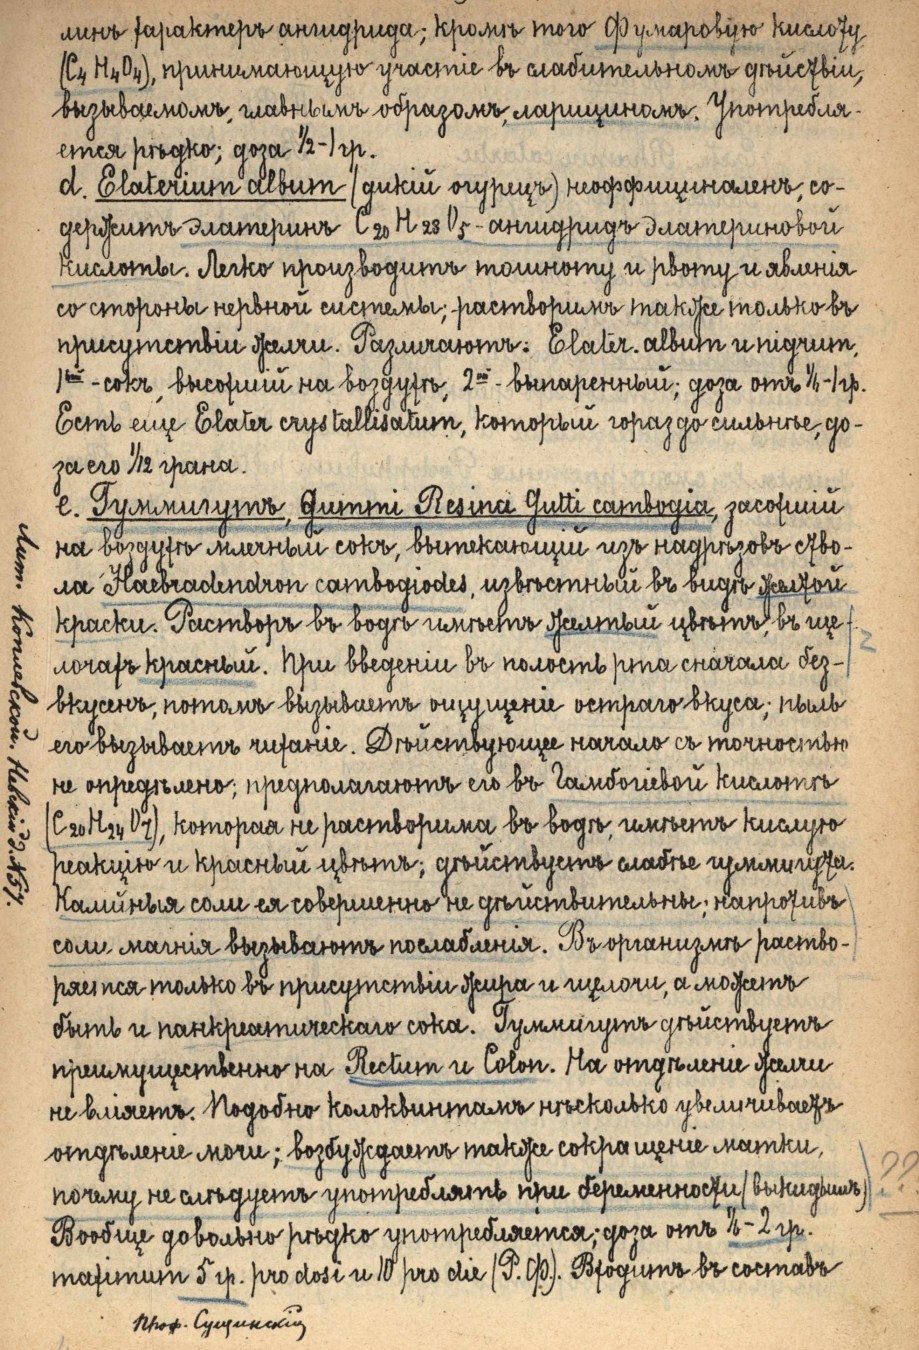 линъ характеръ ангидрида; кромѣ того Фумаровую кислоту
(C4 H4O4), принимающую участіе въ слабительномъ дѣйствіи,
вызываемомъ, главнымъ образомъ, ларициномъ. Употребля-
ется рѣдко; доза 1/2-1 гр.
d. Elaterium album (дикій огурецъ) неоффициналенъ, со-
держитъ элатеринъ C20 H28 O5 - ангидридъ элатериновой
кислоты. Легко производитъ тошноту и рвоту и явленія
со стороны нервной системы; растворимъ также только въ
присутствіи желчи. Различаютъ: Elater. album и nigrum,
1ый - сокъ, высохшій на воздухѣ, 2ой - выпаренный; доза отъ -1 гр.
Есть еще Elater crystallisatum, который гораздо сильнѣе, до-
за его 1/12 грана.
e. Гуммигутъ, Gummi Resina Gutti cambogia, засохшій
на воздухѣ млечный сокъ, вытекающій изъ надрѣзовъ ство-
ла Haebradendron cambogiodes, извѣстный въ видѣ желтой
краски. Растворъ въ водѣ имѣетъ желтый цвѣтъ, въ ще-
лочахъ красный. При введеніи въ полость рта сначала без-
вкусенъ, потомъ вызываетъ ощущеніе остраго вкуса; пыль
его вызываетъ чиханіе. Дѣйствующее начало съ точностью
не опредѣлено; предполагаютъ его въ Гамбогіевой кислотѣ
(C20 H24 O7), которая не растворима въ водѣ, имѣетъ кислую
реакцію и красный цвѣтъ; дѣйствуетъ слабѣе гуммигута.
Калійныя соли ея совершенно не дѣйствительны; напротивъ
соли магнія вызываютъ послабленія. Въ организмѣ раство-
ряется только въ присутствіи жира и щелочи, а можетъ
быть и панкреатическаго сока. Гуммигутъ дѣйствуетъ
преимущественно на Rectum и Colon. На отдѣленіе желчи
не вліяетъ. Подобно колоквинтамъ нѣсколько увеличиваетъ
отдѣленіе мочи; возбуждаетъ также сокращеніе матки,
почему не слѣдуетъ употреблять при беременности (выкидышъ)
??
Вообще довольно рѣдко употребляется; доза отъ - 2 гр.
maximum 5 гр. pro dosi и 10 pro die (Р. Ф.). Входитъ въ составъ
Проф. Сущинскій
Лит. Невскій д. №57.